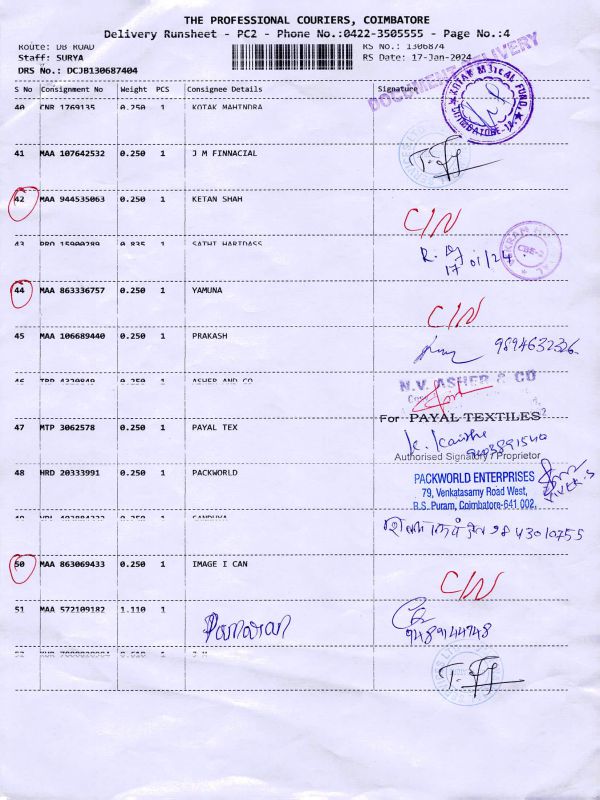 THE PROFESSIONAL COURIERS, COIMBATORE
Delivery Runsheet - PC2 - Phone No.:0422-3505555 - Page No.:4
Route: DB ROAD RS No.: 1306874
Staff: SURYA RS Date: 17-Jan-2024
DRS No.: DCJB130687404
DOCUMENT DELIVERY
S No Consignment No Weight PCS Consignee Details Signature
40 CNR 1769135 0.250 1 KOTAK MAHINDRA
41 MAA 107642532 0.250 1 J M FINNACIAL
42 MAA 944535063 0.250 1 KETAN SHAH
C/N
43 PRO 15900289 0.835 1 SATHI HARIDASS
17/01/24
CBE-2
44 MAA 863336757 0.250 1 YAMUNA
C/N
45 MAA 106689440 0.250 1 PRAKASH
9894632326
46 4320849 0.250 1 ASHER AND CO
N.V. ASHER & CO
47 MTP 3062578 0.250 1 PAYAL TEX
For PAYAL TEXTILES
Authorised Signatory / Proprietor
48 HRD 20333991 0.250 1 PACKWORLD
PACKWORLD ENTERPRISES
79, Venkatasamy Road West,
R.S. Puram, Coimbatore-641 002.
9843010755
50 MAA 863069433 0.250 1 IMAGE I CAN
C/N
51 MAA 572109182 1.110 1
9489144748